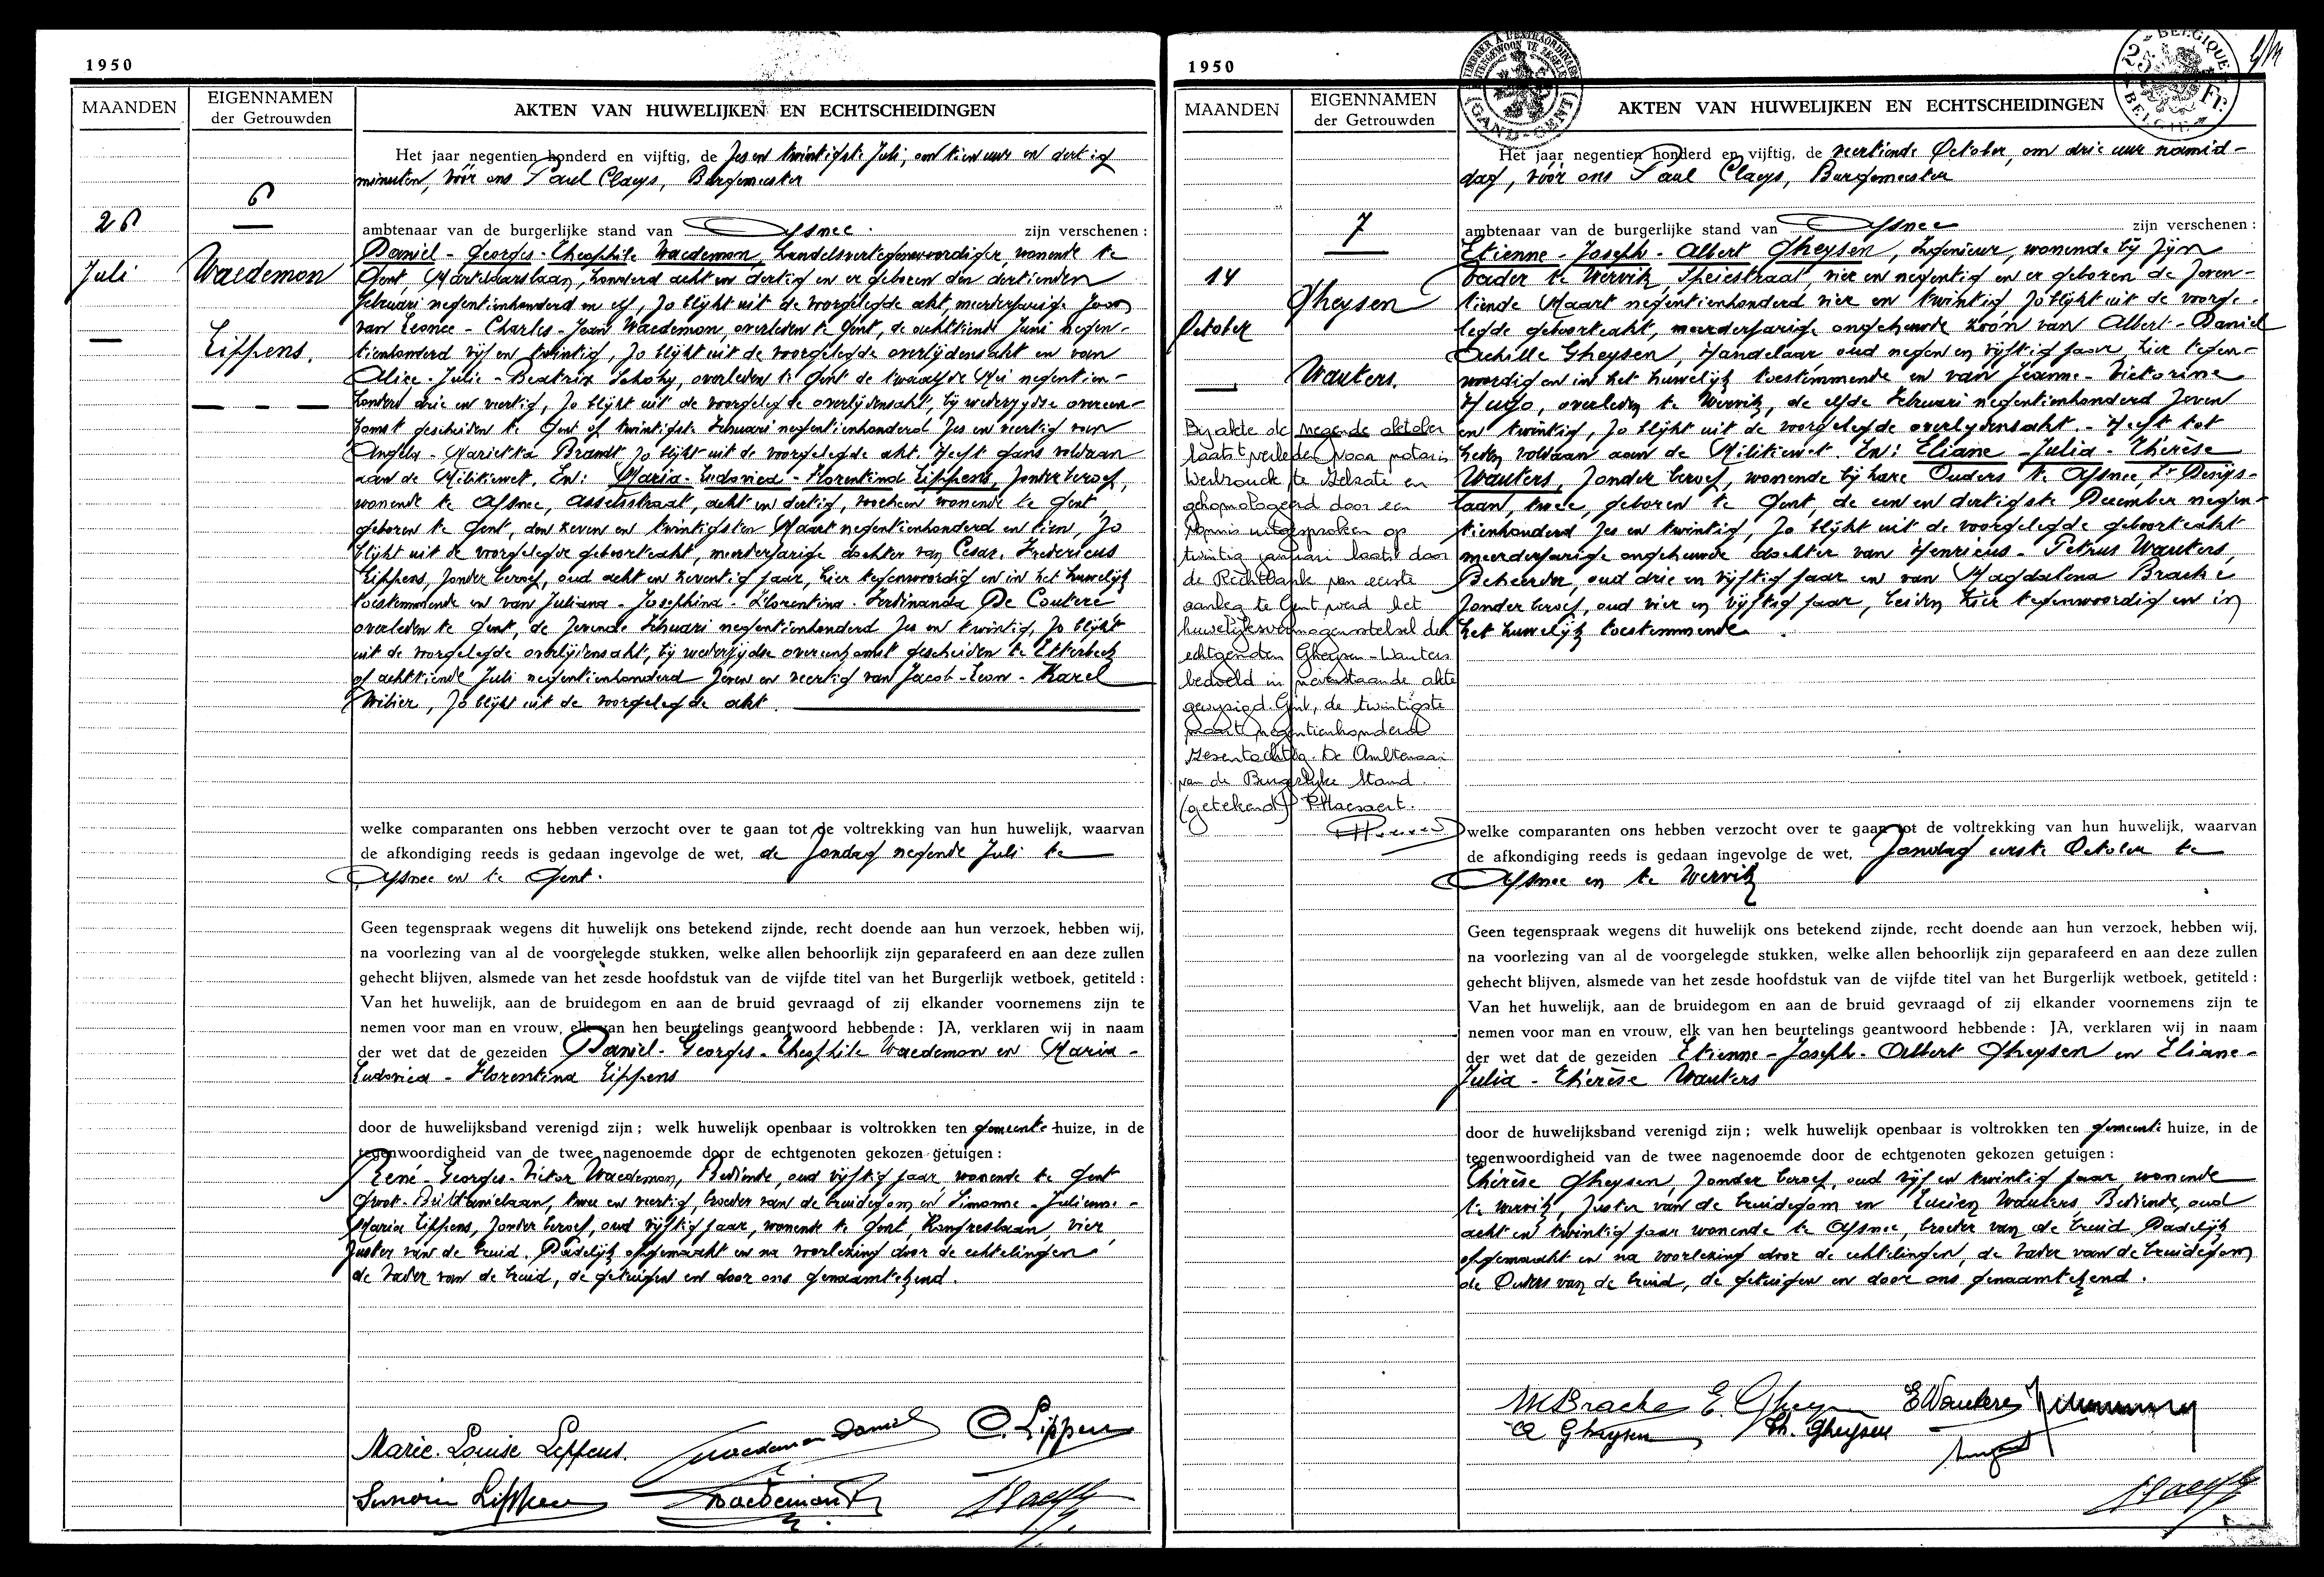 1950
MAANDEN
EIGENNAMEN
der Getrouwden
AKTEN VAN HUWELIJKEN EN ECHTSCHEIDINGEN
6
26
Juli
Waedemon
Lippens.
Het jaar negentien honderd en vijftig, de zes en twintigste Juli, om tien uur en dertig
minuten, vóór ons Paul Claeys, Burgemeester
ambtenaar van de burgerlijke stand van Afsnee. zijn verschenen :
Daniel - Georges - Theophile Waedemon, handelsvertegenwoordiger, wonende te
Gent, Martelaarslaan, honderd acht en dertig en er geboren den dertienden
februari negentienhonderd en elf, zo blijkt uit de voorgelegde akt, meerderjarige zoon
van Leonce - Charles - Jean Waedemon, overleden te Gent, de achttiende Juni negen-
tienhonderd vijf en twintig, zo blijkt uit de voorgelegde overlijdensakt en van
Alice - Julie - Beatrix, overleden te Gent de twaalfde Mei negentien-
honderd drie en veertig, zo blijkt uit de voorgelegde overlijdensakt, bij wederzijdse overeen-
komst gescheiden te Gent op twintigste Februari negentienhonderd zes en veertig van
Angela - Marietta Brandt zo blijkt uit de voorgelegde akt. Heeft gans voldaan
aan de Militiewet. En: Maria - Ludovica - Florentina Lippens, zonder beroep,
wonende te Afsnee, Asselsstraat, acht en dertig, voorheen wonende te Gent
geboren te Gent, den zeven en twintigsten Maart negentienhonderd en tien, zo
blijkt uit de voorgelegde geboorteakt, meerderjarige dochter van Cesar - Fredericus
Lippens, zonder beroep, oud acht en zeventig jaar, hier tegenwoordig en in het huwelijk
toestemmende en van Juliana - Josephina - Florentina - Ferdinanda De Coutere
overleden te Gent, de zevende Februari negentienhonderd zes en twintig, zo blijkt
uit de voorgelegde overlijdensakt, bij wederzijdse overeenkomst gescheiden te Etterbeek
op achttiende Juli negentienhonderd zeven en veertig van Jacob - Leon - Karel
Wibier, zo blijkt uit de voorgelegde akt.
welke comparanten ons hebben verzocht over te gaan tot de voltrekking van hun huwelijk, waarvan
de afkondiging reeds is gedaan ingevolge de wet, de Zondag negende Juli te
Afsnee en te Gent.
Geen tegenspraak wegens dit huwelijk ons betekend zijnde, recht doende aan hun verzoek, hebben wij,
na voorlezing van al de voorgelegde stukken, welke allen behoorlijk zijn geparafeerd en aan deze zullen
gehecht blijven, alsmede van het zesde hoofdstuk van de vijfde titel van het Burgerlijk wetboek, getiteld :
Van het huwelijk, aan de bruidegom en aan de bruid gevraagd of zij elkander voornemens zijn te
nemen voor man en vrouw, elk van hen beurtelings geantwoord hebbende : JA, verklaren wij in naam
der wet dat de gezeiden Daniel - Georges - Theophile Waedemon en Maria -
Ludovica - Florentina Lippens
door de huwelijksband verenigd zijn ; welk huwelijk openbaar is voltrokken ten gemeente huize, in de
tegenwoordigheid van de twee nagenoemde door de echtgenoten gekozen getuigen :
René - Georges - Victor Waedemon, Bediende, oud vijftig jaar, wonende te Gent
Groot - Brittannielaan, twee en veertig, broeder van de bruidegom en Simonne - Julienne -
Maria Lippens, zonder beroep, oud vijftig jaar, wonende te Gent, Kongreslaan, vier,
zuster van de bruid. Dadelijk opgemaakt en na voorlezing door de echtelingen
de Vader van de bruid, de getuigen en door ons genaamtekend.
Marie-Louise Lippens. Waedemon Daniel C. Lippens
Simonne Lippens Waedemon R
1950
MAANDEN
EIGENNAMEN
der Getrouwden
AKTEN VAN HUWELIJKEN EN ECHTSCHEIDINGEN
TIMBRER A L'EXTRAORDINAIRE
GAND-GENT
BELGIQUE
25 Fr.
BELGIE
7
14
October
Gheysen
Wauters.
Bij akte de negende oktober
laatst verleden voor notaris
Werbrouck te Melsate en
gehomologeerd door een
vonnis uitgesproken op
twintig januari laatst door
de Rechtbank van eerste
aanleg te Gent werd het
huwelijksvermogensstelsel der
echtgenoten Gheysen-Wauters
bedoeld in nevenstaande akte
gewijzigd. Gent, de twintigste
maart negentienhonderd
zesentachtig. De Ambtenaar
van de Burgerlijke Stand.
(getekend) P. Haesaert.
Het jaar negentien honderd en vijftig, de veertiende October, om drie uur namid-
dag, vóór ons Paul Claeys, Burgemeester
ambtenaar van de burgerlijke stand van Afsnee zijn verschenen :
Etienne - Joseph - Albert Gheysen, Ingenieur, wonende bij zijn
Vader te Wervik, Speiestraat, vier en negentig en er geboren de zeven-
tiende Maart negentienhonderd vier en twintig, zo blijkt uit de voorge-
legde geboorteakt, meerderjarige ongehuwde zoon van Albert - Daniel
Achille Gheysen, Handelaar oud negen en vijftig jaar, hier tegen-
woordig en in het huwelijk toestemmende en van Jeanne - Victorine
Hugo, overleden te Wervik, de elfde Februari negentienhonderd zeven
en twintig, zo blijkt uit de voorgelegde overlijdensakt. - Heeft tot
heden voldaan aan de Militiewet. En: Eliane - Julia - Thérèse
Wauters, zonder beroep, wonende bij hare Ouders te Afsnee, St Denijs-
laan, twee, geboren te Gent, de een en dertigste December negen-
tienhonderd zes en twintig, zo blijkt uit de voorgelegde geboorteakt
meerderjarige ongehuwde dochter van Henricus - Petrus Wauters,
Beheerder, oud drie en vijftig jaar en van Magdalena Brack
zonder beroep, oud vier en vijftig jaar, beiden hier tegenwoordig en in
het huwelijk toestemmende.
welke comparanten ons hebben verzocht over te gaan tot de voltrekking van hun huwelijk, waarvan
de afkondiging reeds is gedaan ingevolge de wet, Zondag eerste October te
Afsnee en te Wervik
Geen tegenspraak wegens dit huwelijk ons betekend zijnde, recht doende aan hun verzoek, hebben wij,
na voorlezing van al de voorgelegde stukken, welke allen behoorlijk zijn geparafeerd en aan deze zullen
gehecht blijven, alsmede van het zesde hoofdstuk van de vijfde titel van het Burgerlijk wetboek, getiteld :
Van het huwelijk, aan de bruidegom en aan de bruid gevraagd of zij elkander voornemens zijn te
nemen voor man en vrouw, elk van hen beurtelings geantwoord hebbende : JA, verklaren wij in naam
der wet dat de gezeiden Etienne - Joseph - Albert Gheysen en Eliane -
Julia - Thérèse Wauters
door de huwelijksband verenigd zijn ; welk huwelijk openbaar is voltrokken ten gemeente huize, in de
tegenwoordigheid van de twee nagenoemde door de echtgenoten gekozen getuigen :
Thérèse Gheysen, zonder beroep, oud vijf en twintig jaar, wonende
te Wervik, zuster van de bruidegom en Lucien Wauters, Bediende, oud
acht en twintig jaar wonende te Afsnee, broeder van de bruid. Dadelijk
opgemaakt en na voorlezing door de echtelingen, de Vader van de bruidegom
de Ouders van de bruid, de getuigen en door ons genaamtekend.
M Bracke E. Gheysen E Wauters
A Gheysen Th. Gheysen